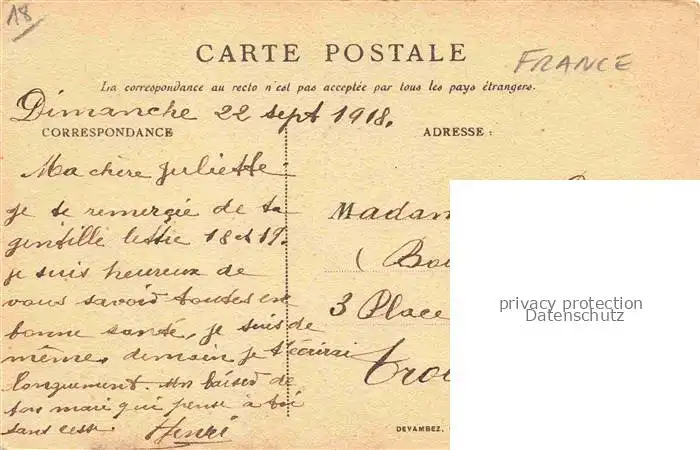 18
CARTE POSTALE
FRANCE
La correspondance au recto n'est pas acceptée par tous les pays étrangers.
Dimanche 22 sept 1918.
CORRESPONDANCE
Ma chère Juliette
je te remercie de ta
gentille lettre 18 et 19.
je suis heureux de
vous savoir toutes en
bonne santé, je suis de
même, demain je t'écrirai
longuement. Un baiser de
ton mari qui pense à toi
sans cesse. Henri
ADRESSE :
Madam
( Bou
3 Place
Tro
DEVAMBEZ,
privacy protection
Datenschutz